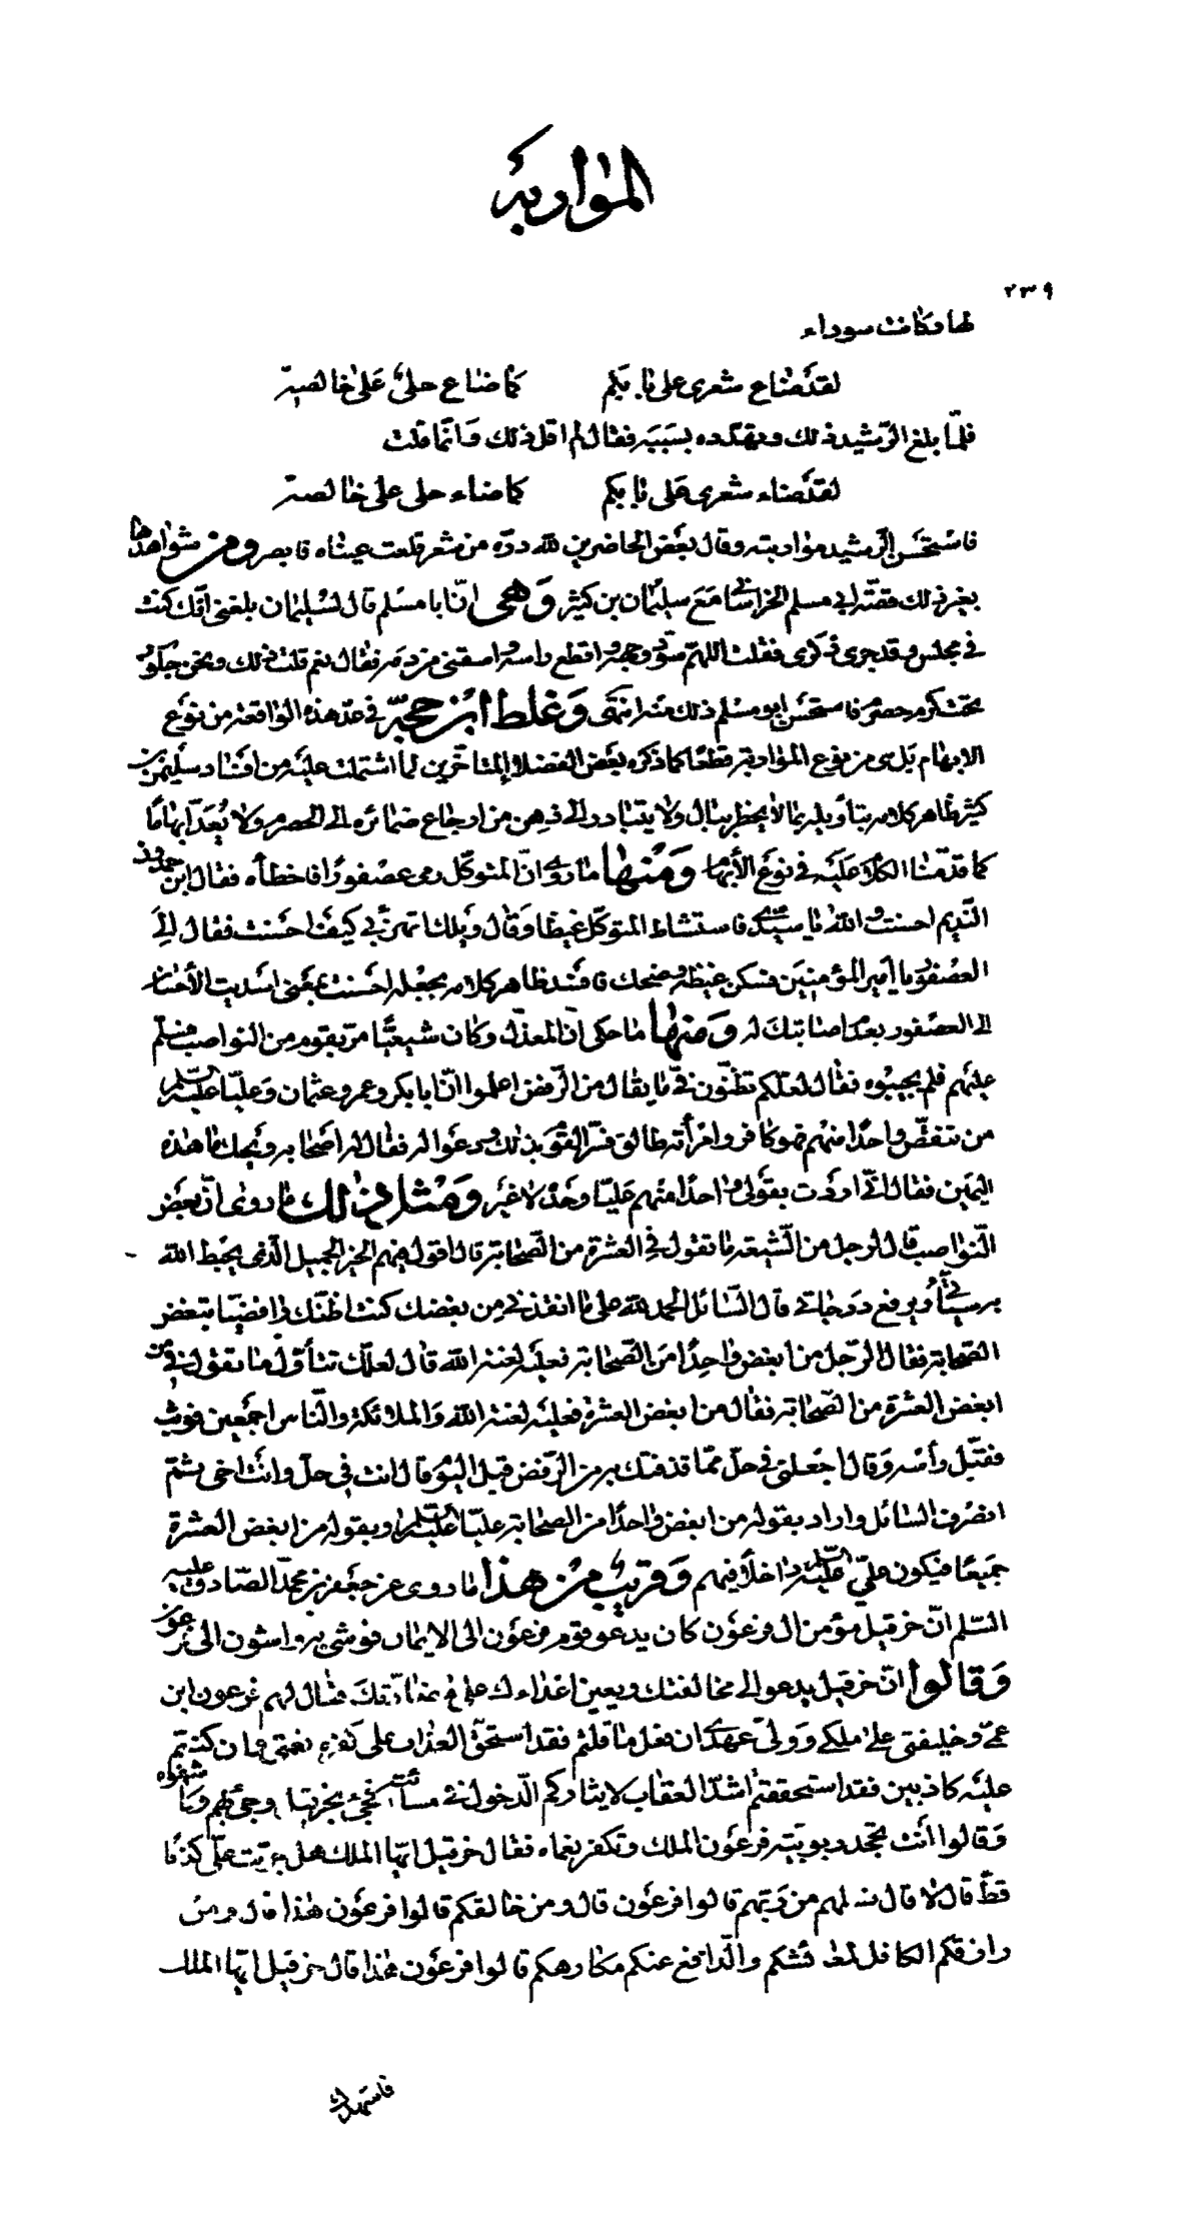 المواربة
٢٣٩
لها وكانت سوداء
لقد ضاع شعرى على بابكم كما ضاع حلى على خالصه
فلما بلغ الرشيد ذلك وتهدده بسببه فقال لم اقل ذلك وانما قلت
لقد ضاء شعرى على بابكم كما ضاء حلى على خالصه
فاستحسن الرشيد مواربته وقال بعض الحاضرين لله دره من شعر قلعت عيناه فابصر ومن شواهدها
بغير ذلك قصة ابى مسلم الخراسانى مع سليمان بن كثير وهى ان ابا مسلم قال لسليمان بلغنى انك كنت
فى مجلس وقد جرى ذكرى فقلت اللهم سود وجهه واقطع راسه واسقنى من دمه فقال نعم قلت ذلك ونحن جلوس
تحت كرم حصرم فاستحسن ابو مسلم ذلك منه انتهى وغلط ابن حجة فى عد هذه الواقعة من نوع
الابهام بل هى من نوع المواربة قطعا كما ذكره بعض الفضلاء المتاخرين لما اشتملت عليه من افساد سليمن بن
كثير ظاهر كلامه بتأويله بما لا يخطر ببال ولا يتبادر الى ذهن من ارجاع ضمائره الى الحصرم ولا يعد ابهاما
كما قدمنا الكلام عليه فى نوع الابهام ومنها ما روى ان المتوكل رمى عصفورا فاخطأه فقال ابن حمدون
النديم احسنت والله يا سيدى فاستشاط المتوكل غيظا وقال ويلك تهزأ بى كيف احسنت فقال الى
العصفور يا امير المؤمنين فسكن غيظه وضحك فافسد ظاهر كلامه بجعله احسنت بمعنى اسديت الاحسان
الى العصفور بعدم اصابتك له ومنها ما حكى ان المعذل وكان شيعيا مر بقوم من النواصب فسلم
عليهم فلم يجيبوه فقال لعلكم تظنون فى ما يقال من الرفض اعلموا ان ابا بكر وعمر وعثمان وعليا عليه السلم
من تنقص واحدا منهم فهو كافر وامرأته طالق فسر القوم بذلك ودعوا له فقال له اصحابه ويحك ما هذه
اليمين فقال انى اردت بقولى واحدا منهم عليا وحده لا غير ومثل ذلك ما روى ان بعض
النواصب قال لرجل من الشيعة ما تقول فى العشرة من الصحابة قال اقول فيهم الخير الجميل الذى يحبط الله
به سيئاتى ويرفع درجاتى قال السائل الحمد لله على ما انقذنى من بغضك كنت اظنك رافضيا تبغض
الصحابة فقال الرجل من ابغض واحدا من الصحابة فعليه لعنة الله قال لعلك تتأول ما تقول فى من
ابغض العشرة من الصحابة فقال من ابغض العشرة فعليه لعنة الله والملائكة والناس اجمعين فوثب
فقبل رأسه وقال اجعلنى فى حل مما قذفتك به من الرفض قبل اليوم قال انت فى حل وانت اخى ثم
انصرف السائل واراد بقوله من ابغض واحدا من الصحابة عليا عليه السلم وبقوله من ابغض العشرة
جميعا فيكون على عليه السلم داخلا فيهم وقريب من هذا ما روى عن جعفر بن محمد الصادق عليه
السلم ان خرقيل مؤمن ال فرعون كان يدعو قوم فرعون الى الايمان فوشى به واشون الى فرعون
وقالوا ان خرقيل يدعو الى مخالفتك ويعين اعداءك على مضادتك فقال لهم فرعون ابن
عمى وخليفتى على ملكى وولى عهدى ان فعل ما قلتم فقد استحق العذاب على كفره نعمتى وان كنتم
عليه كاذبين فقد استحققتم اشد العقاب لايثاركم الدخول فى مساءته فجئ بخرقيل وجئ بهم وكاشفوه
وقالوا انت تجحد ربوبية فرعون الملك وتكفر نعماه فقال خرقيل ايها الملك هل جربت على كذبا
قط قال لا قال فسلهم من ربهم قالوا فرعون قال ومن خالقكم قالوا فرعون هذا قال ومن
رازقكم الكافل لمعائشكم والدافع عنكم مكارهكم قالوا فرعون هذا قال خرقيل ايها الملك
فاشهدك